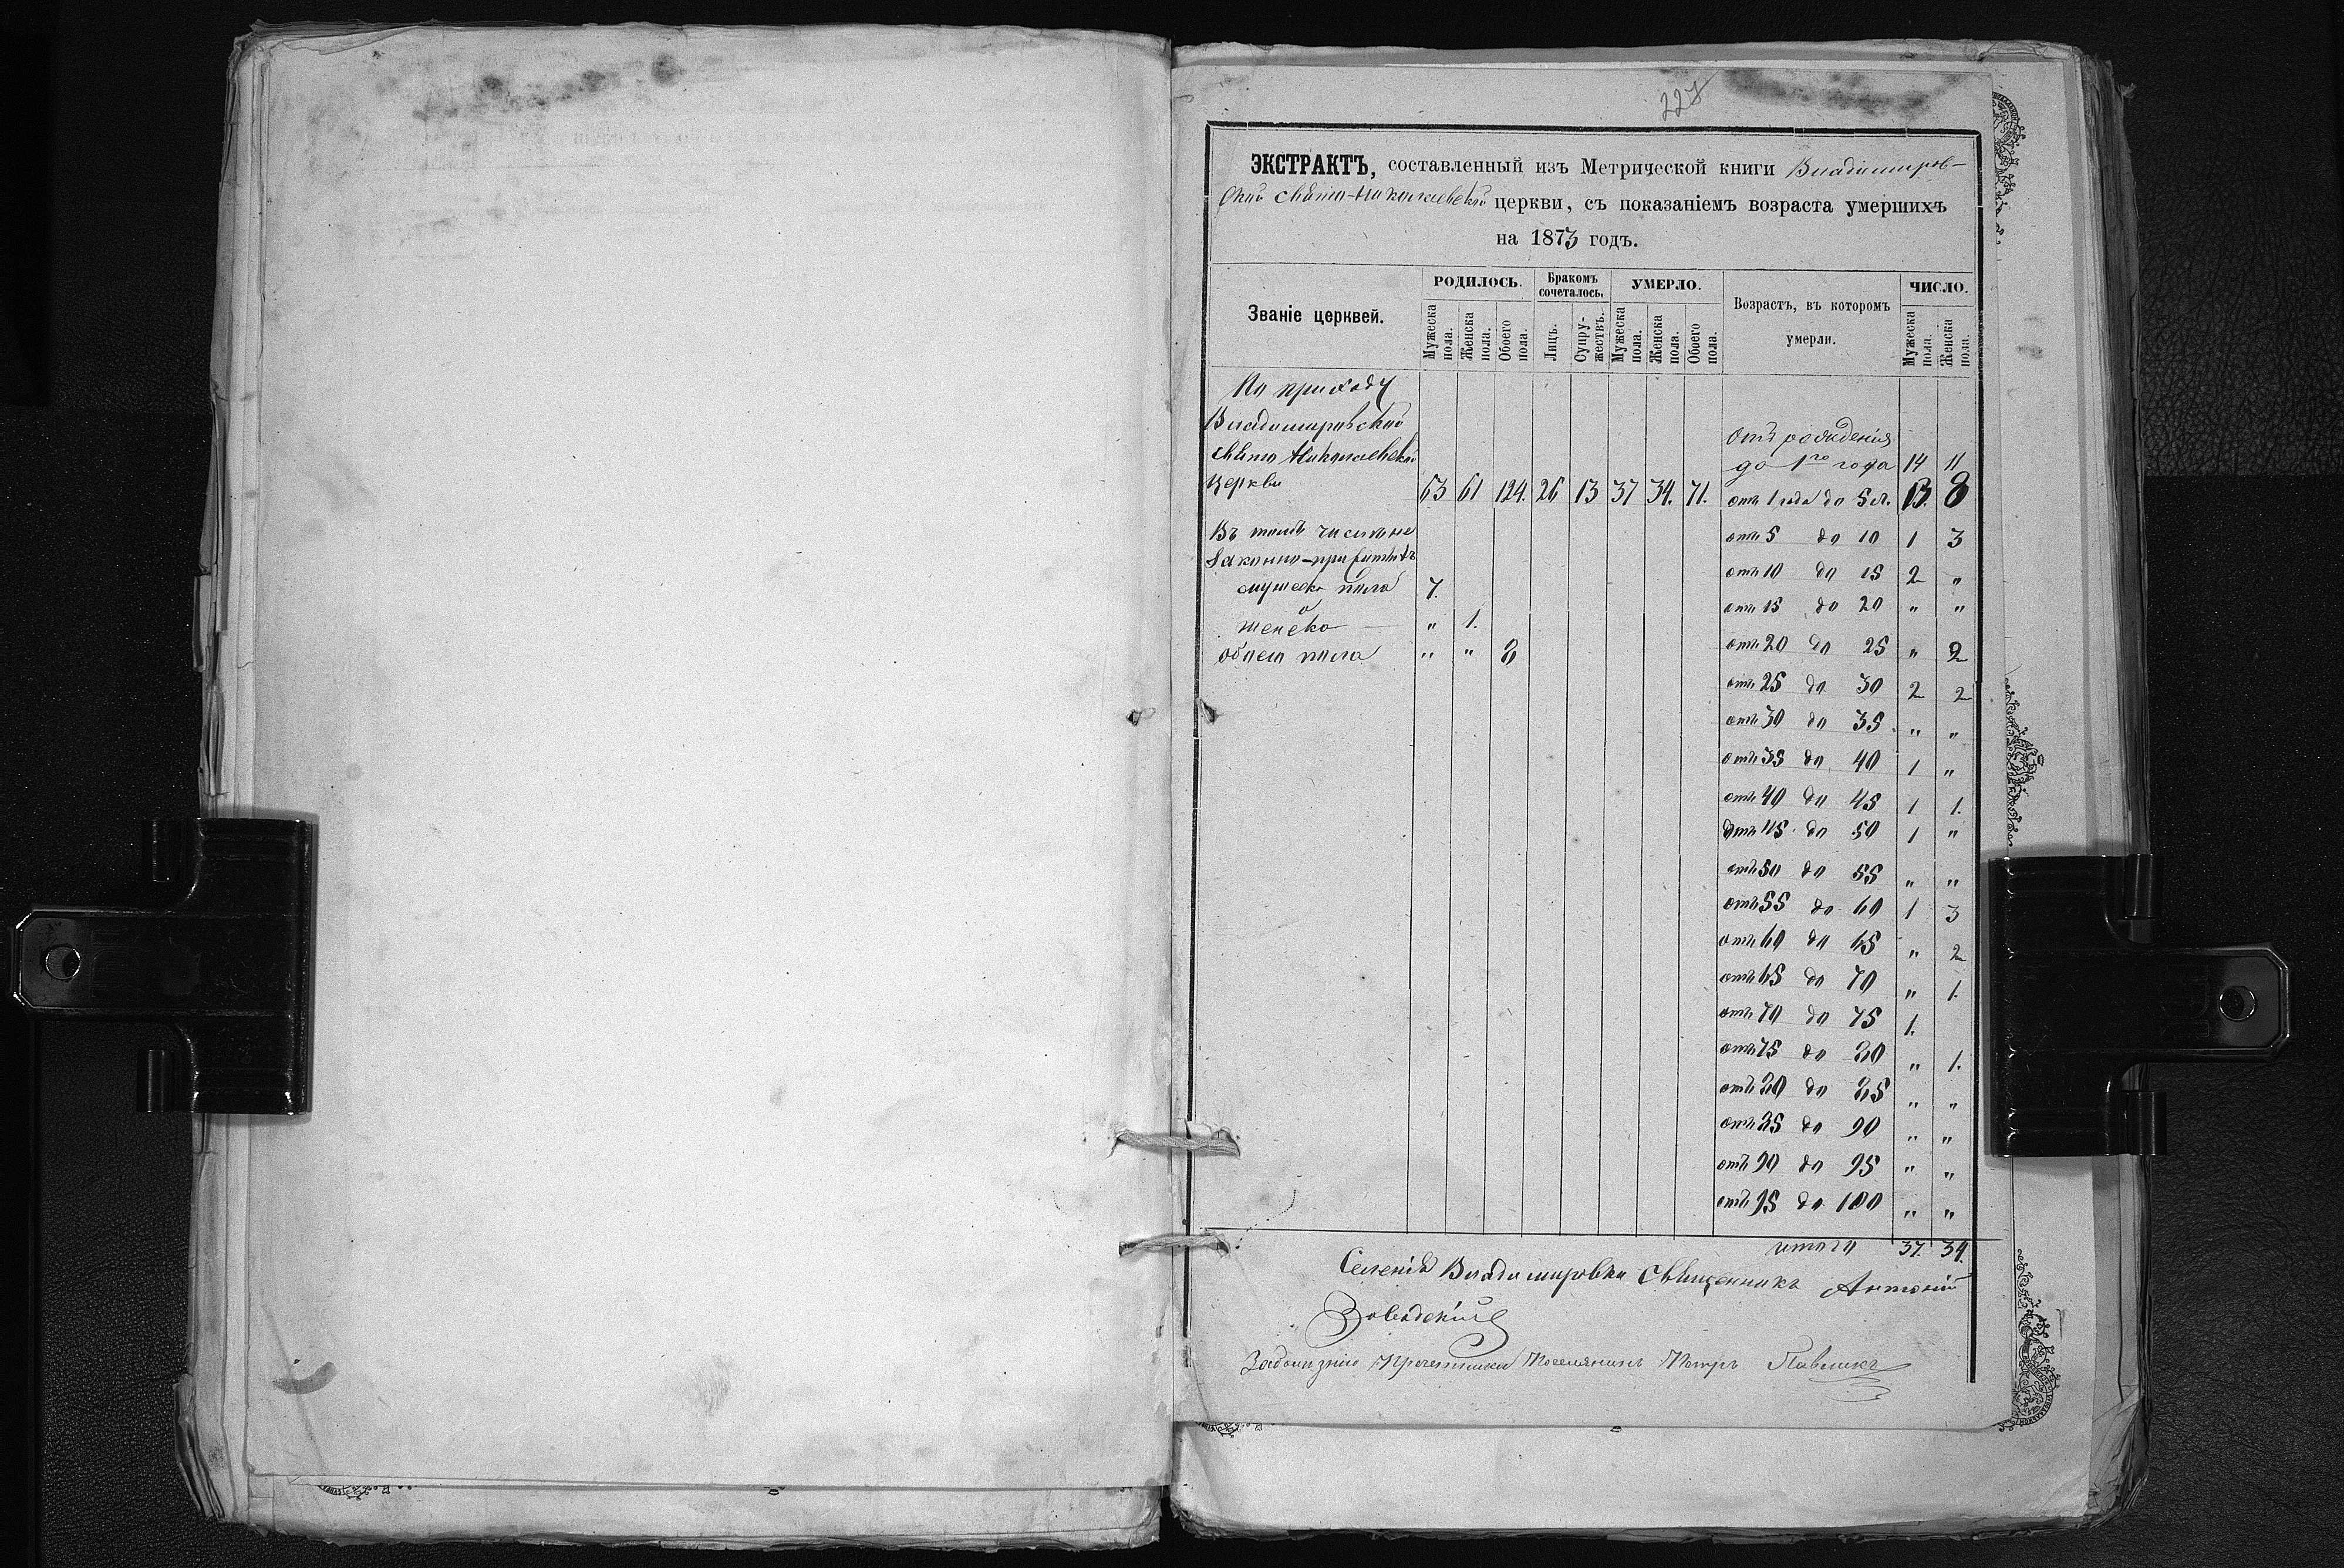 227
ЭКСТРАКТЪ, составленный изъ Метрической книги Владиміров-
ской Свято-Николаевской церкви, съ показаніемъ возраста умершихъ
на 1873 годъ.
Званіе церквей. РОДИЛОСЬ. Бракомъ сочеталось. УМЕРЛО. Возрастъ, въ которомъ умерли. ЧИСЛО.
Мужеска пола. Женска пола. Обоего пола. Лицъ. Супружествъ. Мужеска пола. Женска пола. Обоего пола. Мужеска пола. Женска пола.
По приходу
Владимировской
Свято Николаевской
церкви 63 61 124. 26 13 37 34. 71.
Въ томъ числѣ не
законно-прижитыхъ
мужеска пола 7.
женска — " 1.
обоего пола " " 8
отъ рожденія
до 1го года 14 11
отъ 1 года до 5 л. 13. 8
отъ 5 до 10 1 3
отъ 10 до 15 2 "
отъ 15 до 20 " "
отъ 20 до 25 " 2
отъ 25 до 30 2 2
отъ 30 до 35 " "
отъ 35 до 40 1 "
отъ 40 до 45 1 1.
отъ 45 до 50 1 "
отъ 50 до 55 " "
отъ 55 до 60 1 3
отъ 60 до 65 " 2
отъ 65 до 70 " 1.
отъ 70 до 75 1.
отъ 75 до 80 " 1.
отъ 80 до 85 " "
отъ 85 до 90 " "
отъ 90 до 95 " "
отъ 95 до 100 " "
итого 37. 34.
Селенія Владимировки Священникъ Антоній
Заводскій
Псаломщика Поселянинъ Петръ Павликъ